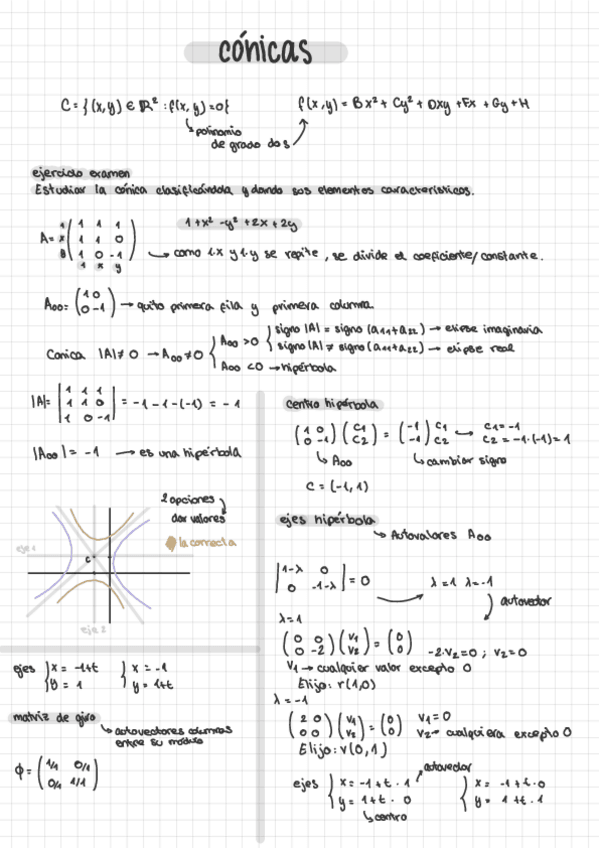 cónicas
C = {(x,y) ∈ ℝ² : f(x,y) = 0} f(x,y) = Bx² + Cy² + Dxy + Fx + Gy + H
↳ polinomio
de grado dos
ejercicio examen
Estudiar la cónica clasificándola y dando sus elementos característicos.
1 + x² - y² + 2x + 2y
1 1 1 1
A = x 1 1 0 → como 1·x y 1·y se repite, se divide el coeficiente/constante.
1 0 -1
1 x y
A₀₀ = (1 0
0 -1) → quito primera fila y primera columna
Conica |A| ≠ 0 → A₀₀ ≠ 0
A₀₀ > 0
signo |A| = signo (a₁₁ + a₂₂) → elipse imaginaria
signo |A| ≠ signo (a₁₁ + a₂₂) → elipse real
A₀₀ < 0 → hipérbola
1 1 1
|A| = 1 1 0 = -1 - 1 - (-1) = -1
1 0 -1
|A₀₀| = -1 → es una hipérbola
2 opciones
dar valores
la correcta
eje 1
c
eje 2
ejes { x = -1+t { x = -1
y = 1 y = 1+t
matriz de giro
↳ autovectores columnas
entre su módulo
ϕ = (1/1 0/1
0/1 1/1)
centro hipérbola
(1 0 (c1 = (-1 c1 → c1 = -1
0 -1) c2) 1) c2 c2 = -1·(-1) = 1
↳ A₀₀ ↳ cambiar signo
C = (-1, 1)
ejes hipérbola
↳ Autovalores A₀₀
|1-λ 0
0 -1-λ| = 0 → λ = 1 λ = -1
autovector
λ = 1
(0 0 (v1 = (0
0 -2) v2) 0) -2·v2 = 0 ; v2 = 0
v1 → cualquier valor excepto 0
Elijo: r(1,0)
λ = -1
(2 0 (v1 = (0 v1 = 0
0 0) v2) 0) v2 → cualquiera excepto 0
Elijo: v(0,1)
autovector
ejes { x = -1 + t · 1 { x = -1 + t · 0
y = 1 + t · 0 y = 1 + t · 1
↳ centro